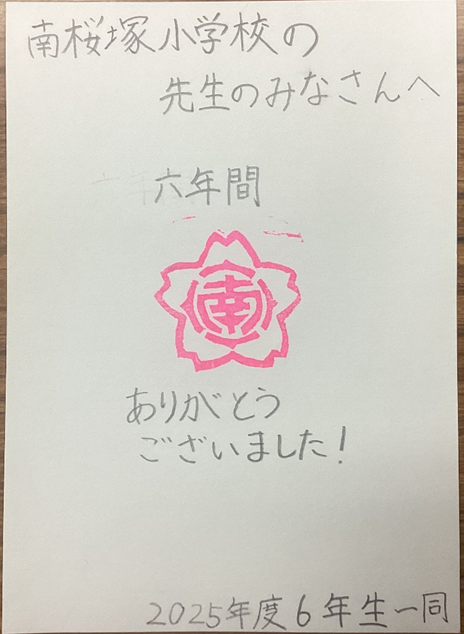 南桜塚小学校の
先生のみなさんへ
六年間
南
ありがとう
ございました!
2025年度6年生一同